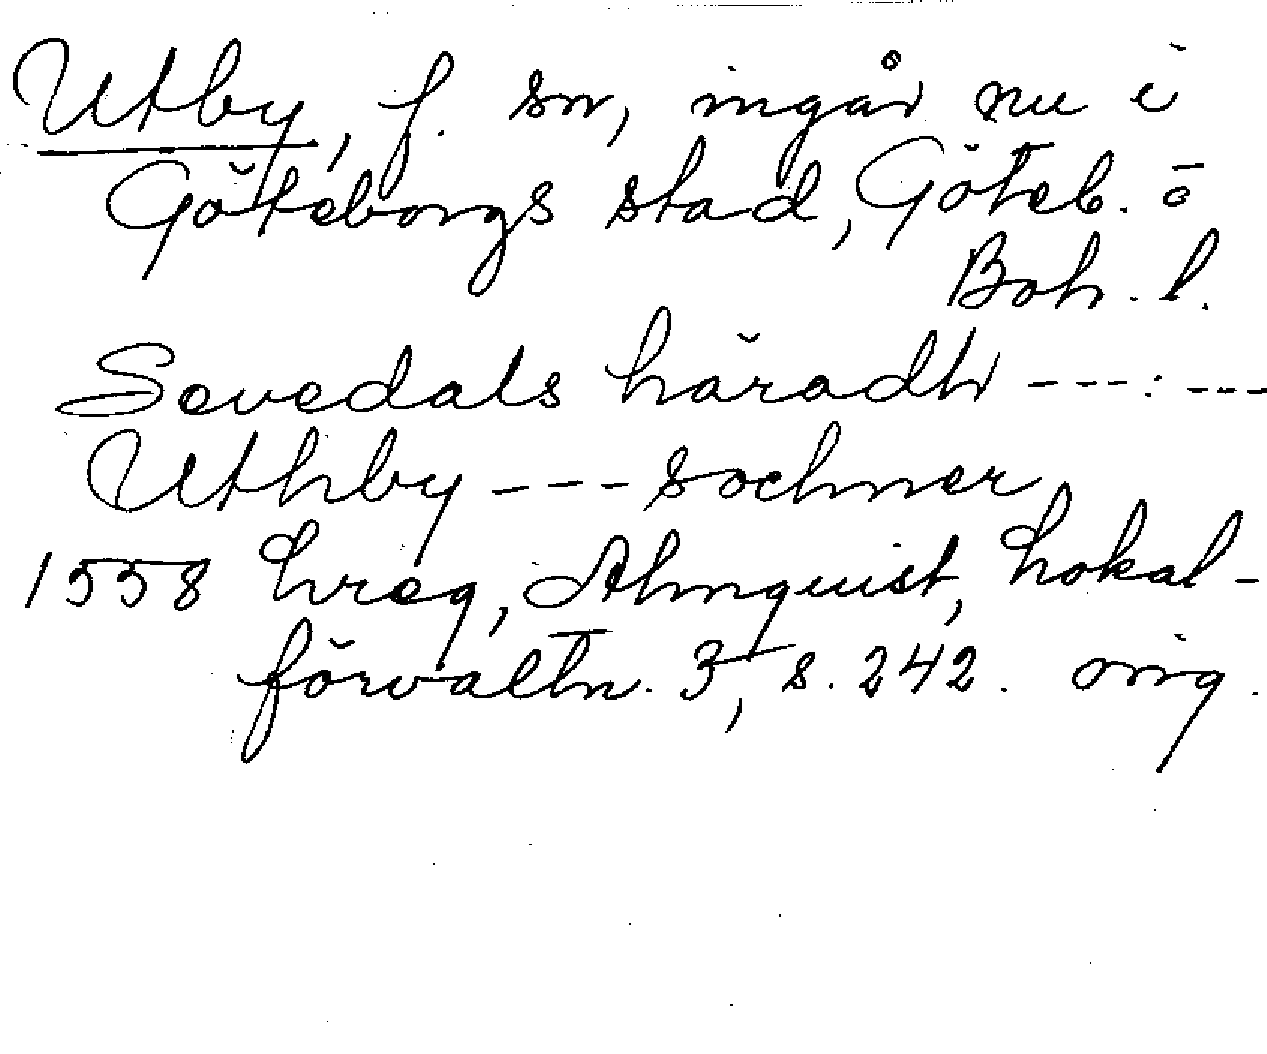 Utby, f. sn, ingår nu i
Göteborgs stad, Göteb. o
Boh. l.
Sevedals häradh ---:---
Uthby --- sochner
1558 hreg, Almquist, Lokal-
förvaltn. 3, s. 242. orig.